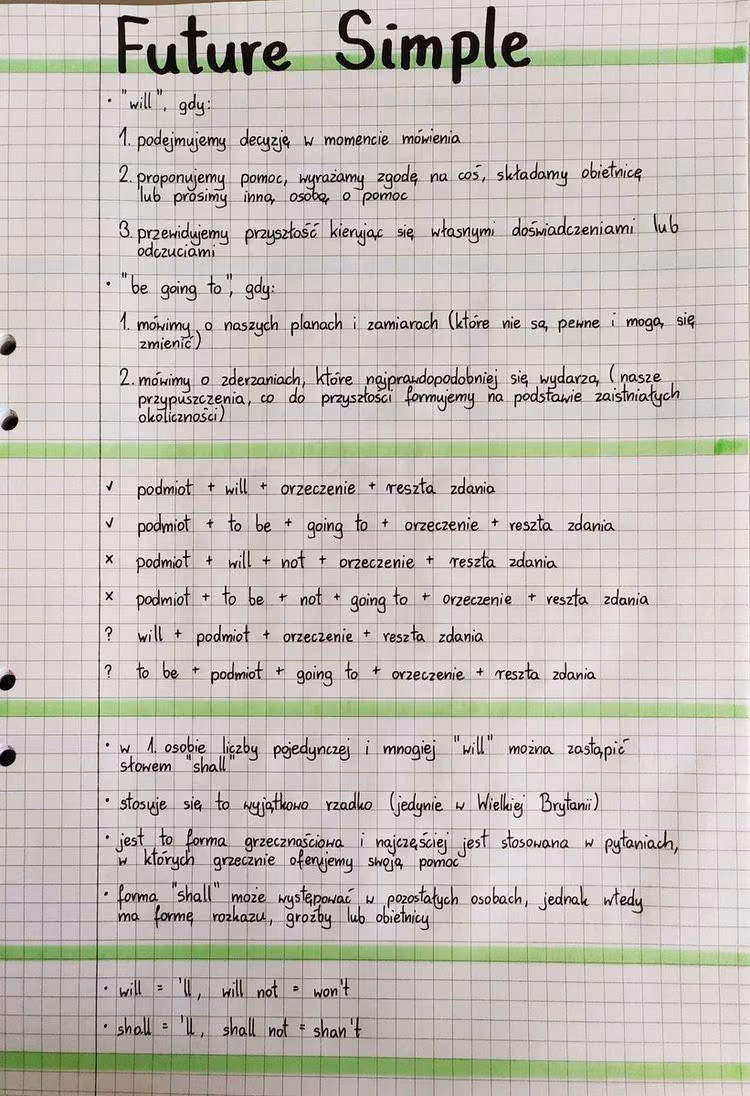 Future Simple
• "will", gdy:
1. podejmujemy decyzję w momencie mówienia
2. proponujemy pomoc, wyrażamy zgodę na coś, składamy obietnicę
lub prosimy inną osobę o pomoc
3. przewidujemy przyszłość kierując się własnymi doświadczeniami lub
odczuciami
• "be going to", gdy:
1. mówimy o naszych planach i zamiarach (które nie są pewne i mogą się
zmienić)
2. mówimy o zderzaniach, które najprawdopodobniej się wydarzą (nasze
przypuszczenia, co do przyszłości formujemy na podstawie zaistniałych
okoliczności)
✓ podmiot + will + orzeczenie + reszta zdania
✓ podmiot + to be + going to + orzeczenie + reszta zdania
x podmiot + will + not + orzeczenie + reszta zdania
x podmiot + to be + not + going to + orzeczenie + reszta zdania
? will + podmiot + orzeczenie + reszta zdania
? to be + podmiot + going to + orzeczenie + reszta zdania
• w 1. osobie liczby pojedynczej i mnogiej "will" można zastąpić
słowem "shall"
• stosuje się to wyjątkowo rzadko (jedynie w Wielkiej Brytanii)
• jest to forma grzecznościowa i najczęściej jest stosowana w pytaniach,
w których grzecznie oferujemy swoją pomoc
• forma "shall" może występować w pozostałych osobach, jednak wtedy
ma formę rozkazu, groźby lub obietnicy
• will = 'll, will not = won't
• shall = 'll, shall not = shan't